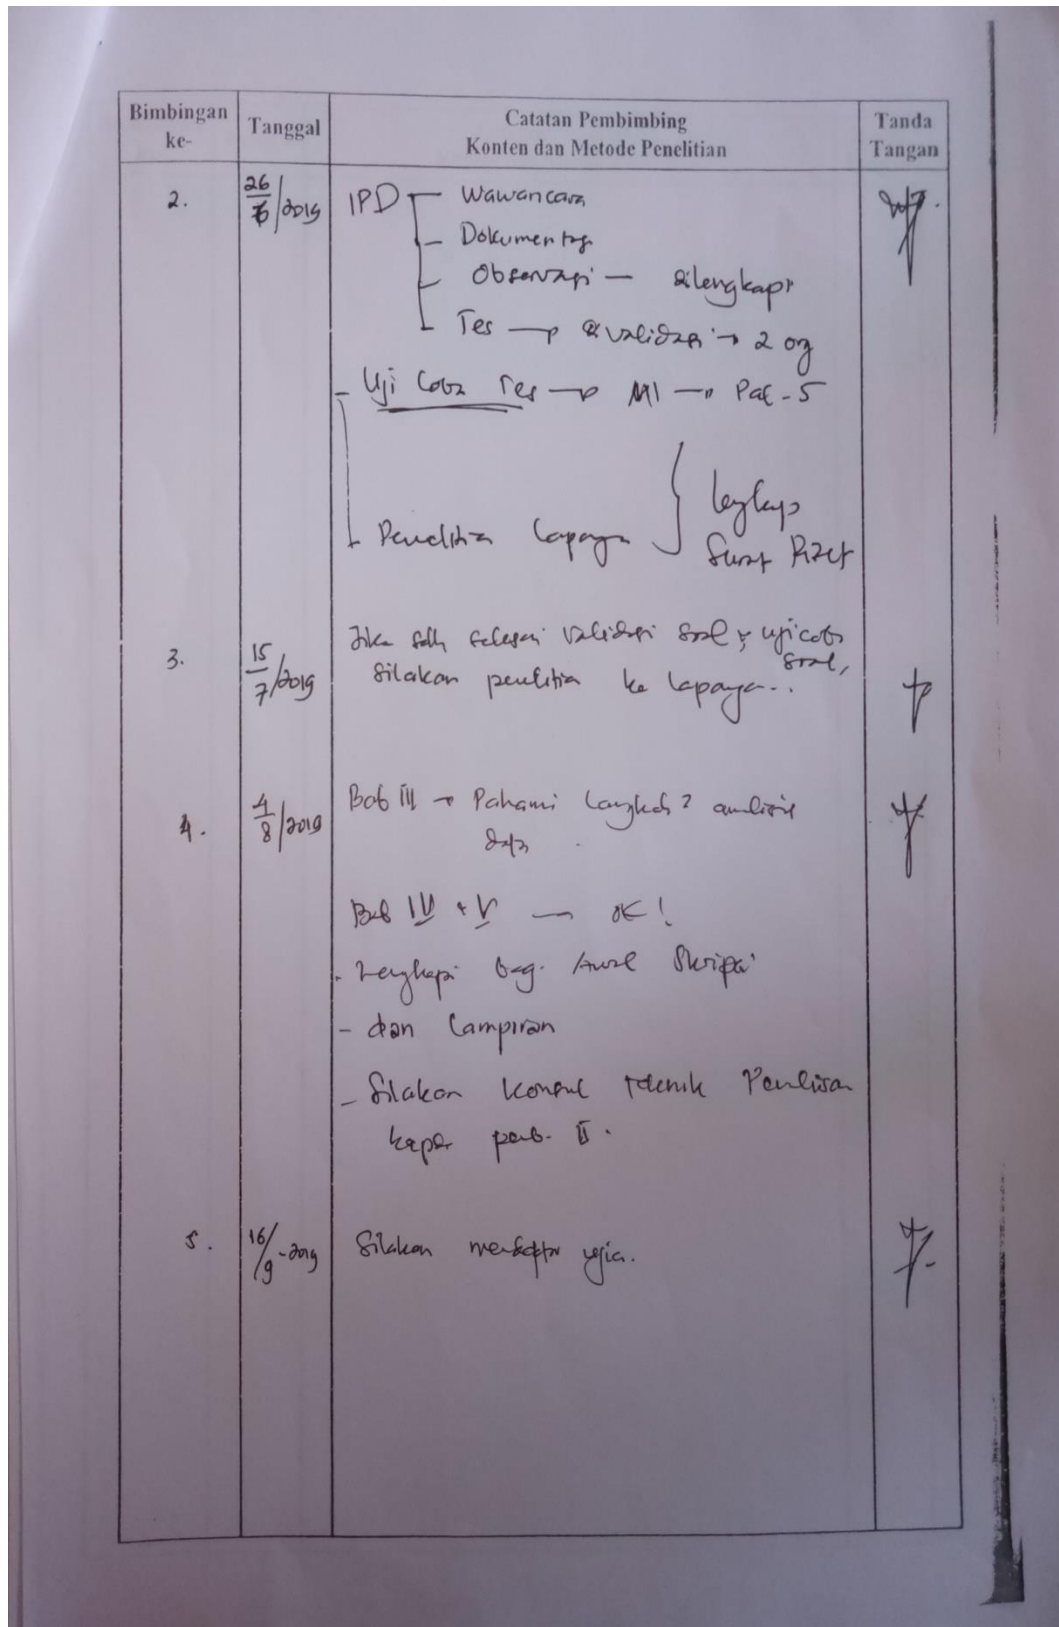 Bimbingan ke-
Tanggal
Catatan Pembimbing
Konten dan Metode Penelitian
Tanda Tangan
2.
26/6/2019
IPD - Wawancara
- Dokumentasi
- Observasi — dilengkapi
- Tes → divalidasi → 2 org
- Uji Coba Tes → MI → Pal-5
- Penelitian lapangan } lengkapi
Surat Rizet
3.
15/7/2019
Jika sdh selesai validasi soal & uji coba soal,
silakan penelitian ke lapangan..
4.
4/8/2019
Bab III → Pahami langkah2 analisis
data.
Bab IV + V — OK!
- Lengkapi bag. Awal Skripsi
- dan Lampiran
- Silakan konsul teknik Penulisan
kepd. pemb. II.
5.
16/9-2019
Silakan mendaftar ujian.